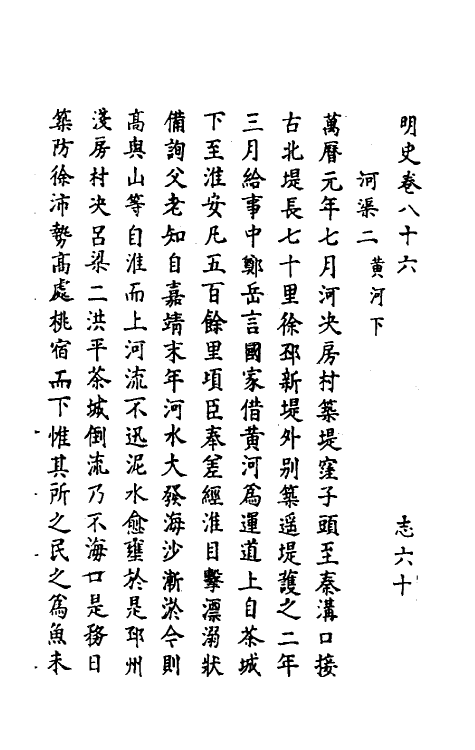 明史卷八十六　志六十
河渠二　黄河下
萬曆元年七月河決房村築堤窪子頭至秦溝口接
古北堤長七十里徐邳新堤外别築遥堤護之二年
三月給事中鄭岳言國家借黄河爲運道上自茶城
下至淮安凡五百餘里頃臣奉差經淮目擊漂溺狀
備詢父老知自嘉靖末年河水大發海沙漸淤今則
高與山等自淮而上河流不迅泥水愈壅於是邳州
淺房村决呂梁二洪平茶城倒流乃不海口是務日
築防徐沛勢高處桃宿而下惟其所之民之爲魚未